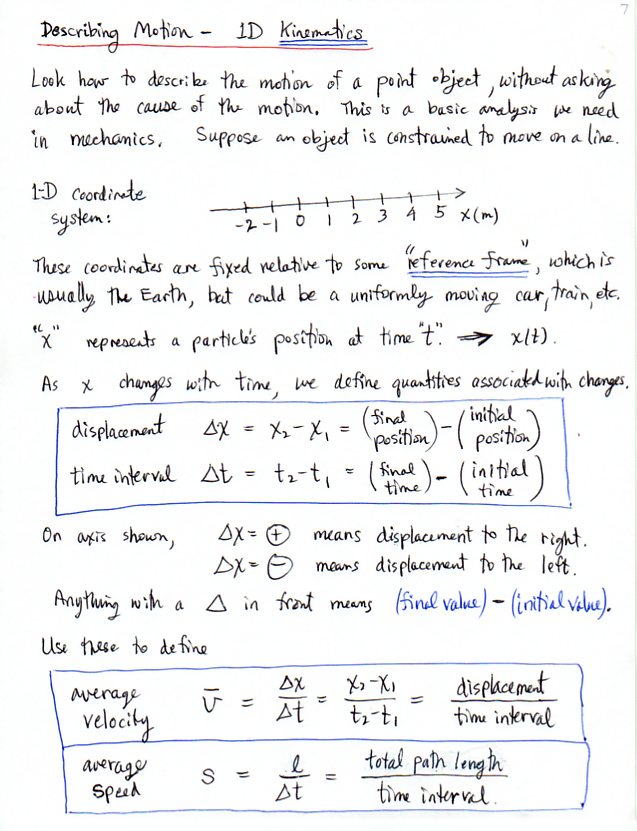 7
Describing Motion - 1D Kinematics
Look how to describe the motion of a point object, without asking
about the cause of the motion. This is a basic analysis we need
in mechanics. Suppose an object is constrained to move on a line.
1-D Coordinate
system:
-2 -1 0 1 2 3 4 5 x(m)
These coordinates are fixed relative to some "reference frame", which is
usually the Earth, but could be a uniformly moving car, train, etc.
"x" represents a particle's position at time "t". → x(t).
As x changes with time, we define quantities associated with changes.
displacement Δx = x₂-x₁ = (final position) - (initial position)
time interval Δt = t₂-t₁ = (final time) - (initial time)
On axis shown, Δx = ⊕ means displacement to the right.
Δx = ⊖ means displacement to the left.
Anything with a Δ in front means (final value) - (initial value).
Use these to define
average velocity v̄ = Δx/Δt = x₂-x₁/t₂-t₁ = displacement/time interval
average speed s = l/Δt = total path length/time interval.